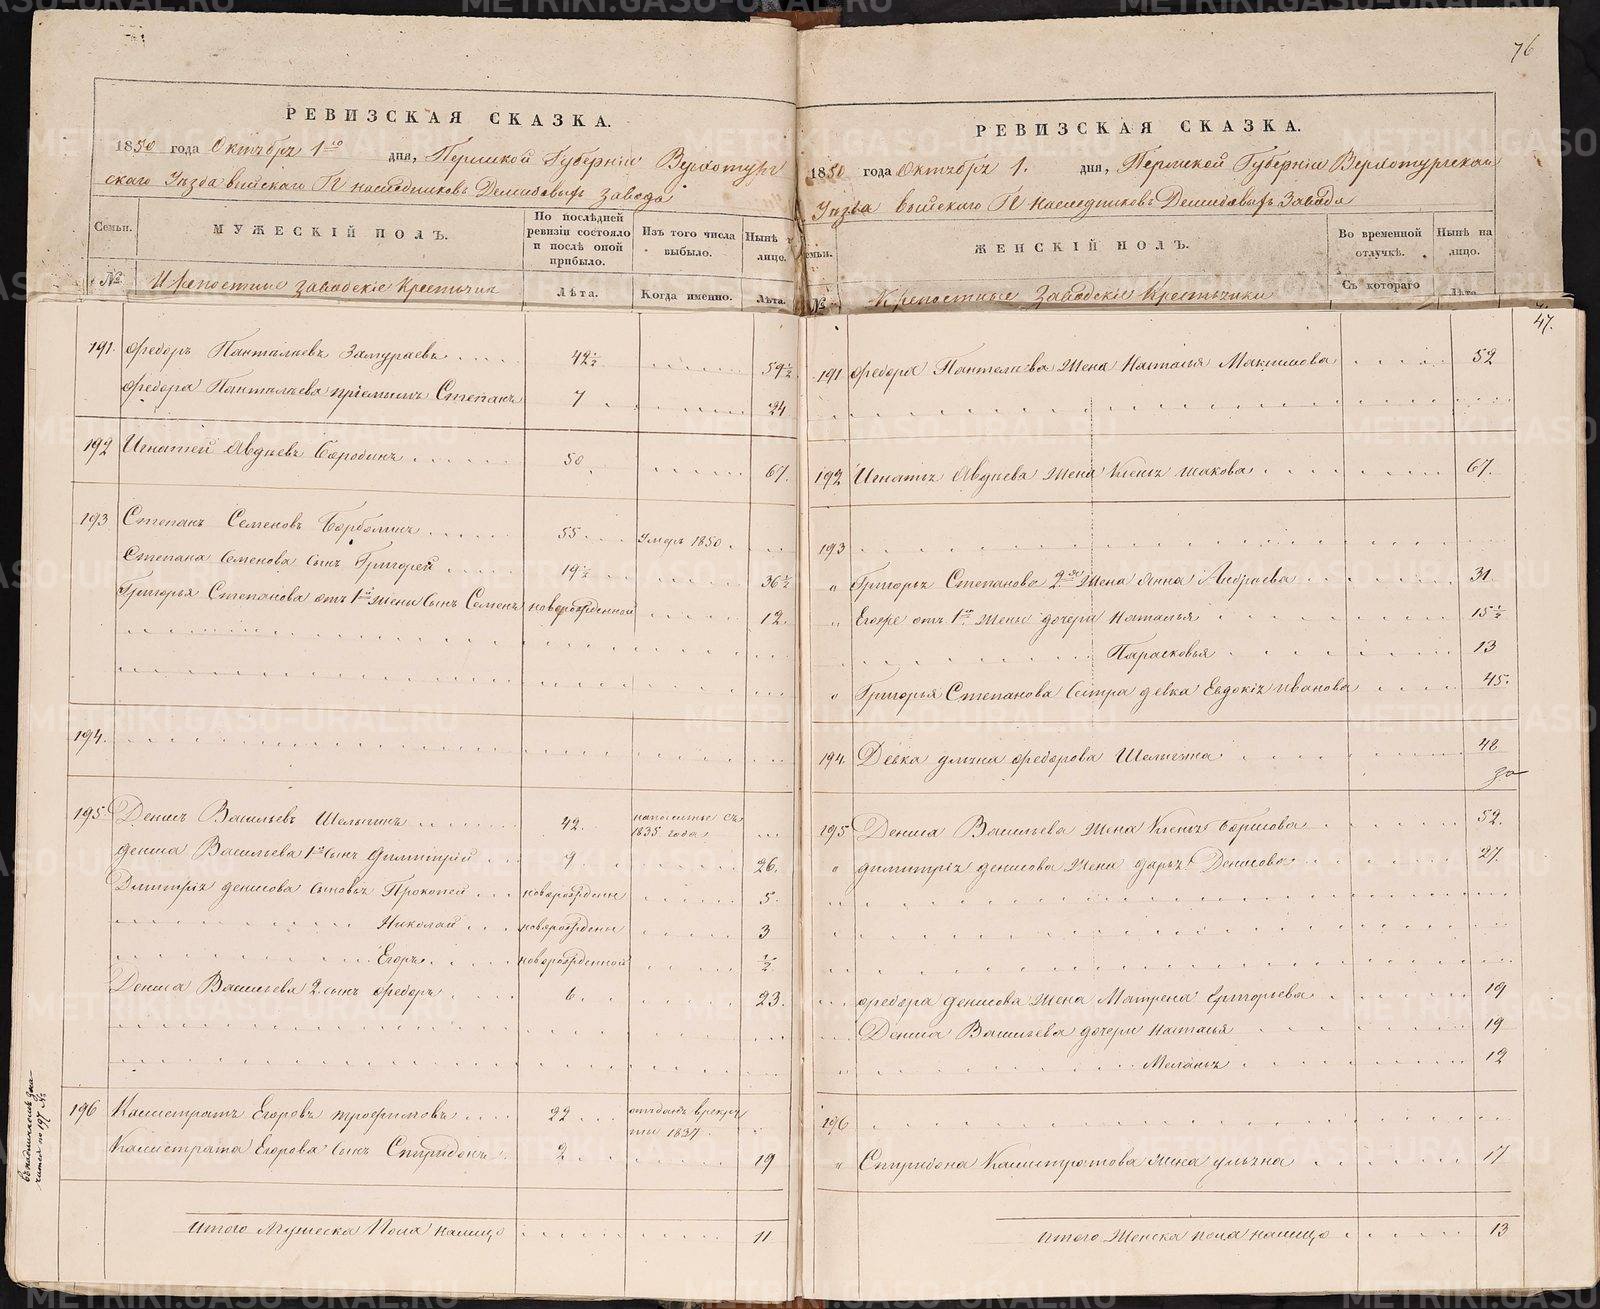 76
РЕВИЗСКАЯ СКАЗКА.
1850 года Октября 1го дня, Пермской Губернiи Верхотур
скаго Уѣзда выйскаго Гг наслѣдниковъ Демидовыхъ завода
Семьи.
МУЖЕСКIЙ ПОЛЪ.
По послѣдней ревизiи состояло и послѣ оной прибыло.
Изъ того числа выбыло.
Нынѣ лицо.
№
Крепостные заводскiе Крестьяне
Лѣта.
Когда именно.
Лѣта.
191. Федоръ Пантелѣевъ Замураевъ 42½ 59½
Федора Пантелѣева прiемышъ Степанъ 7 24
192 Игнатей Авдѣевъ Бородинъ 50 67.
193 Степанъ Семеновъ 55 умеръ 1850
Степана Семенова сынъ Григорей 19½ 36½
Григорья Степанова отъ 1й жены сынъ Семенъ новорожденной 12.
194.
195 Денисъ Васильевъ Шелыгинъ 42. 1835 года
Дениса Васильева 1й сынъ Димитрiй 9 26.
Дмитрiя Денисова сыновья Прокопей новорожденны 5.
Николай новорожденны 3
Егоръ новорожденной ½
Дениса Васильева 2. сынъ Федоръ 6. 23.
196 Калистратъ Егоровъ Трофимовъ 22 отданъ в рекру
ты 1837
Калистрата Егорова сынъ Спиридонъ 2 19
Итого Мужеска Пола налицо 11
РЕВИЗСКАЯ СКАЗКА.
1850 года Октября 1. дня, Пермской Губернiи Верхотурскаго
Уѣзда выйскаго Гг Наслѣдниковъ Демидовыхъ Завода
емьи.
ЖЕНСКIЙ ПОЛЪ.
Во временной отлучкѣ.
Нынѣ на лицо.
№
Крепостные Заводскiе Крестьянки
Съ котораго
Лѣта
47.
191 Федора Пантелѣева жена Наталья Максимова 52
192 Игнатья Авдѣева жена 67.
193
" Григорья Степанова 2я жена Анна Андреева 31
" Егоже отъ 1й жены дочери Наталья 15½
Парасковья 13
" Григорья Степанова сестра девка Евдокiя Иванова 45.
194. Девка Ульяна Федорова 48
195 Дениса Васильева жена Борисова 52.
" Димитрiя Денисова жена Дарья Денисова 27.
Федора Денисова жена Матрена Григорьева 19
Дениса Васильева дочери Наталья 19
" Меланья 12
196
" Спиридона Калистратова жена Ульяна 17
Итого Женска пола налицо 13
METRIKI.GASO-URAL.RU